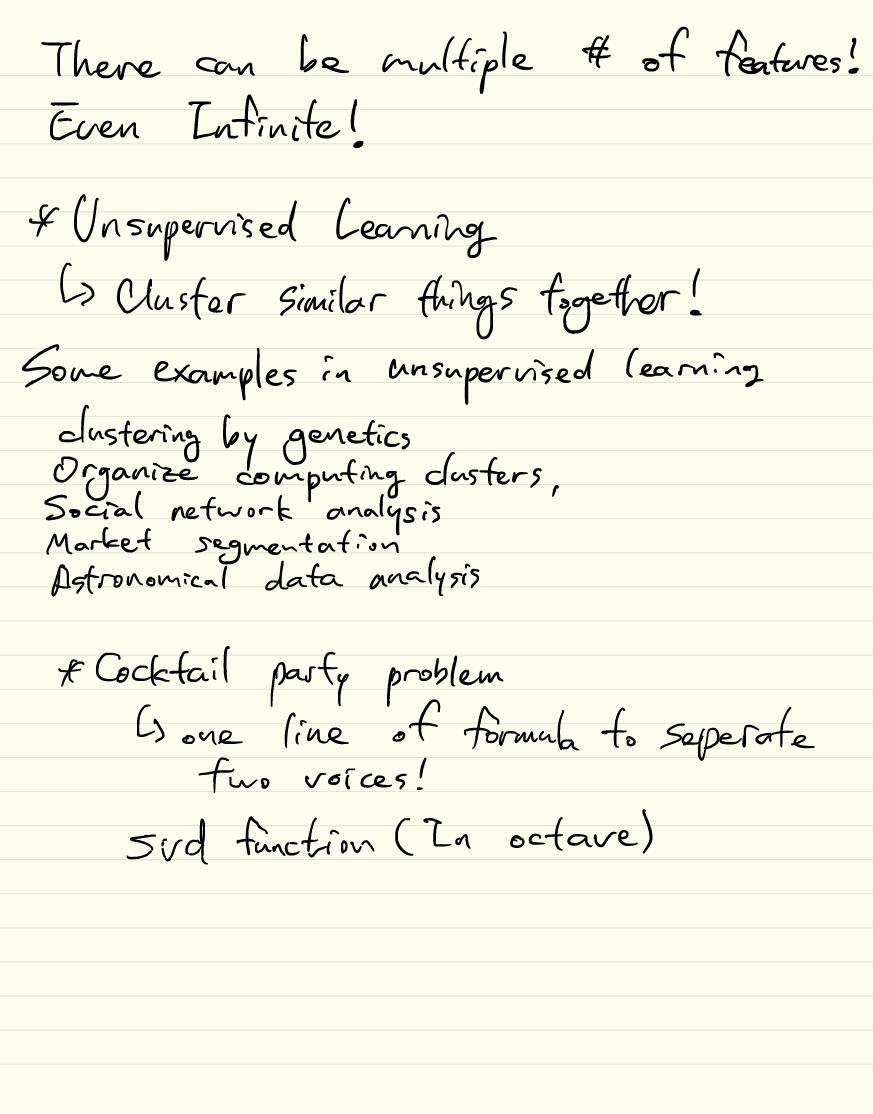 There can be multiple # of features!
Even Infinite!
* Unsupervised Learning
↳ Cluster similar things together!
Some examples in unsupervised learning
clustering by genetics
Organize computing clusters,
Social network analysis
Market segmentation
Astronomical data analysis
* Cocktail party problem
↳ one line of formula to seperate
two voices!
svd function (In octave)